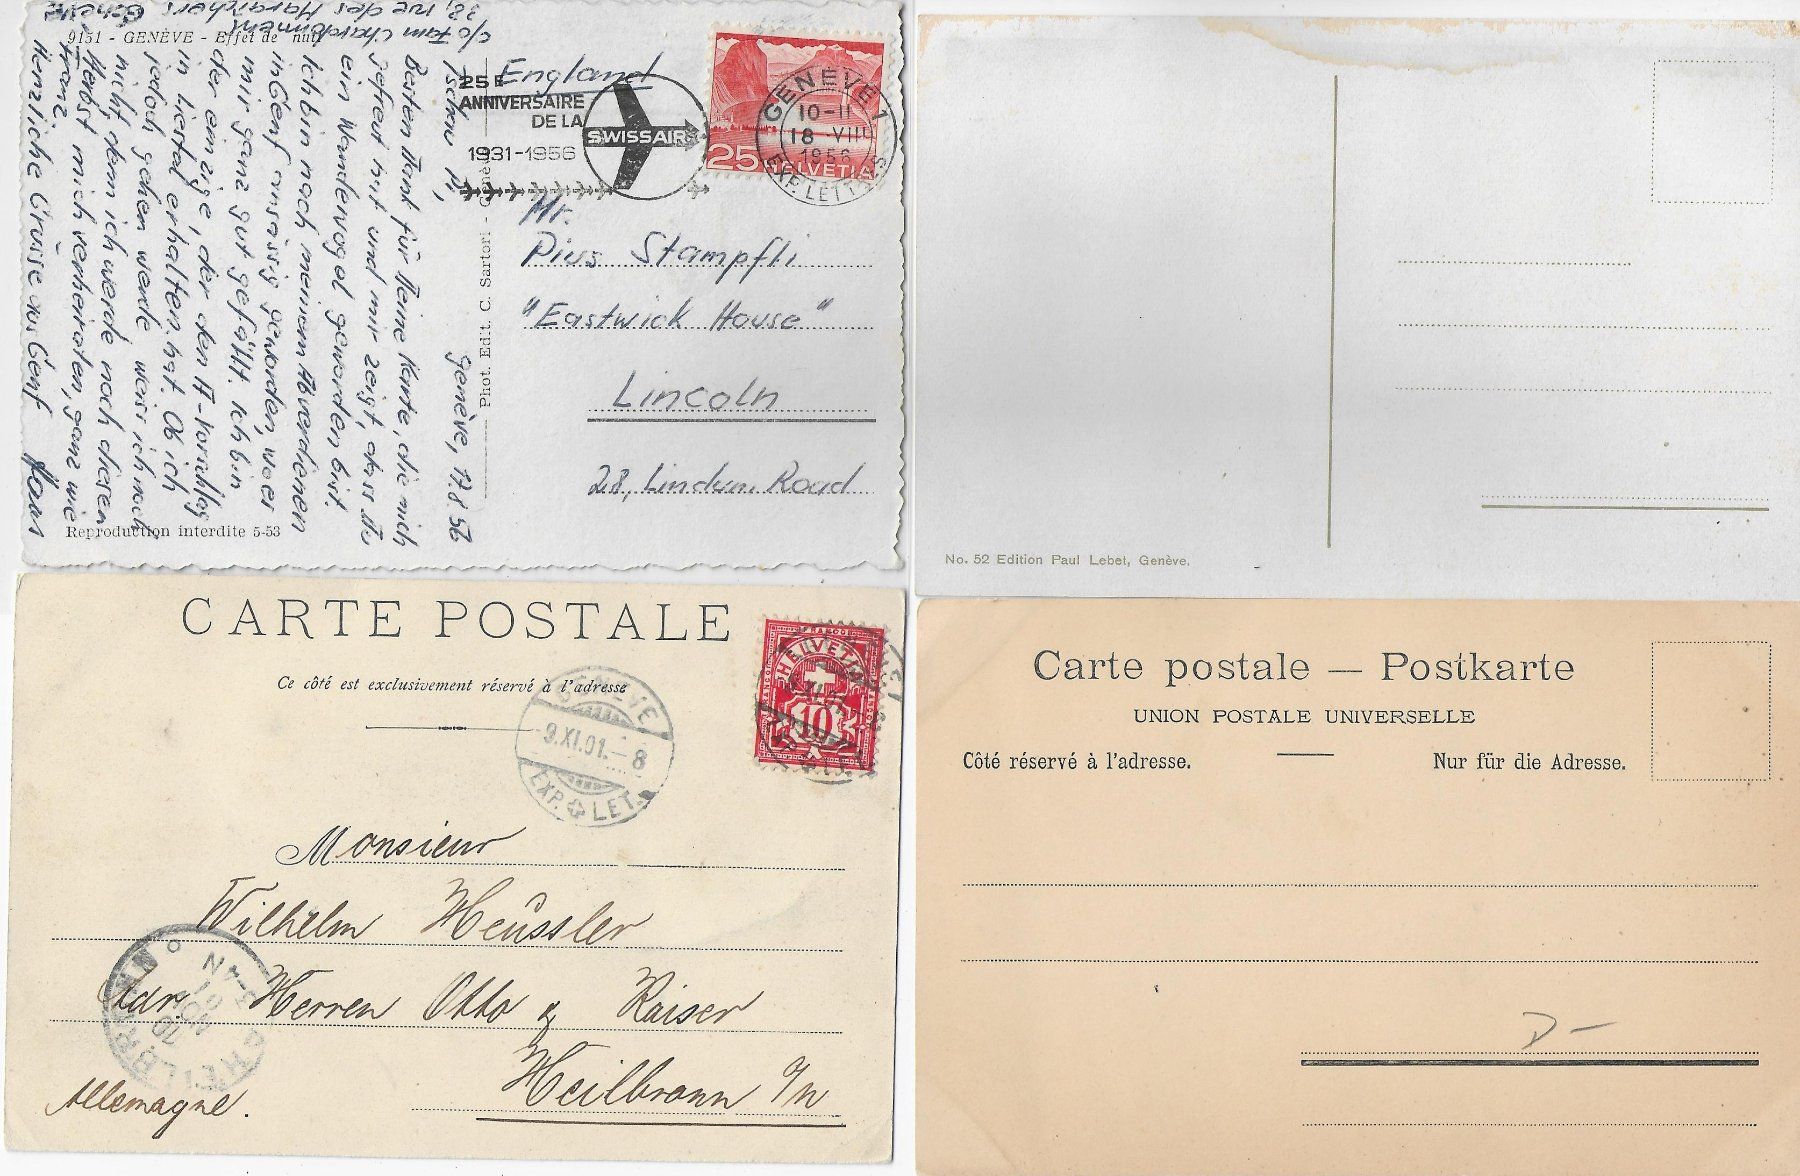 9151 - GENÈVE - Effet de nuit
Genève, 17.8.56
Besten Dank für Deine Karte, die mich
gefreut hat und mir zeigt, dass Du
ein Wandervogel geworden bist.
Ich bin nach meinem Abverdienen
in Genf ansässig geworden, wo er
mir ganz gut gefällt. Ich bin
der einzige, der den Vorschlag
in Liestal erhalten hat. Ob ich
jedoch gehen werde, weiss ich noch
nicht, denn ich werde noch diesen
Herbst mich verheiraten, ganz wie
Franz.
Herzliche Grüsse aus Genf Hans
38, rue des Maraîchers Genève
Reproduction interdite 5-53
Phot. Edit. C. Sartori - Genève
England
25E
ANNIVERSAIRE
DE LA
SWISSAIR
1931-1956
25 HELVETIA
GENÈVE 1
10-11
18-VIII
1956
EXP. LETTRES
Mr.
Pius Stampfli
"Eastwick House"
Lincoln
28, Lindum Road
No. 52 Edition Paul Lebet, Genève.
CARTE POSTALE
Ce côté est exclusivement réservé à l'adresse
GENÈVE
9.XI.01.-8
EXP. LET.
FRANCO
HELVETIA
10
Monsieur
Wilhelm Heussler
Adr. Herren Otto & Kaiser
Heilbronn a/N
Allemagne.
HEILBRONN
Carte postale — Postkarte
UNION POSTALE UNIVERSELLE
Côté réservé à l'adresse. Nur für die Adresse.
D-